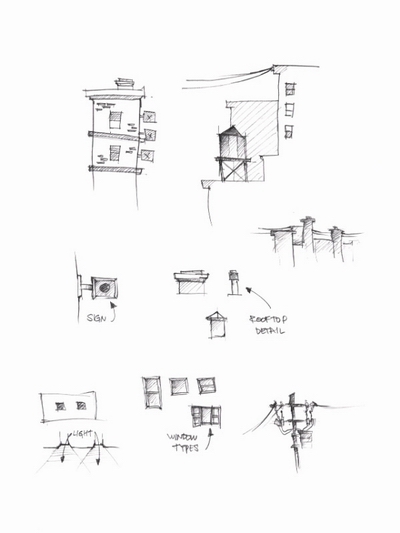 SIGN
ROOFTOP
DETAIL
LIGHT
WINDOW
TYPES